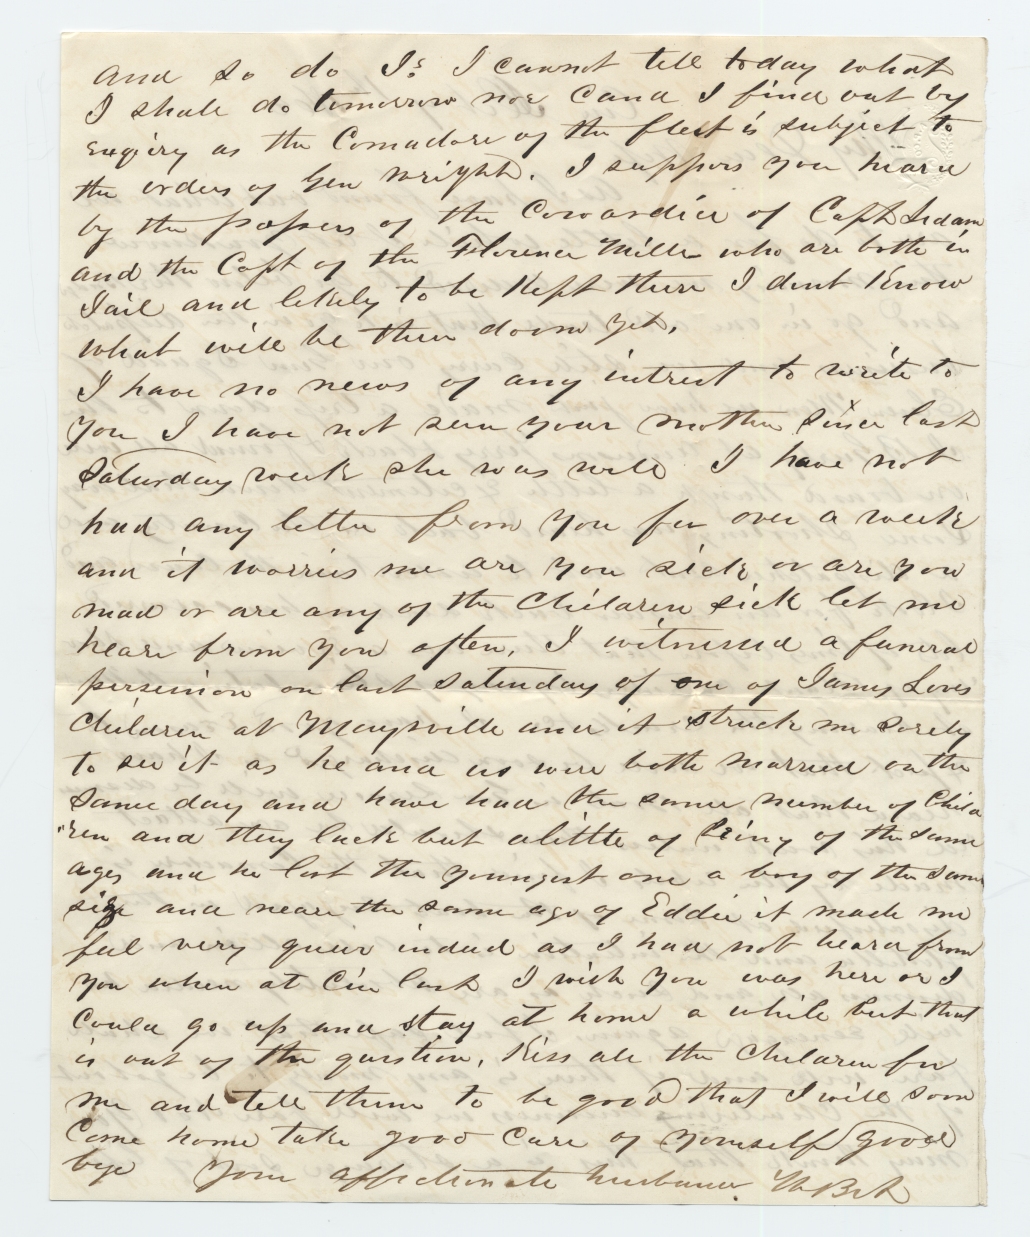 and so do I. I cannot tell today what
I shall do tomorrow nor cand I find out by
enqiry as the Comadore of the fleet is subject to
the orders of Gen Wright. I suppos you heard
by the papers of the Cowardice of Capt
and the Capt of the Florence Miller who are both in
Jail and likely to be Kept there I dont Know
what will be then doom yet.
I have no news of any intrest to write to
you I have not seen your mother since last
Saturday week she was well I have not
had any letter from you for over a week
and it worries me are you sick or are you
mad or are any of the Children sick let me
hear from you often, I witnessed a funeral
persesion on last Saturday of one of James Loves
Children at Maysville and it struck me sorely
to see it as he and us were both married on the
same day and have had the same number of Child
"ren and they lack but alittle of being of the same
ages and he lost the youngest one a boy of the same
size and near the same age of Eddie it made me
feel very queir indeed as I had not heard from
you when at Cin last I wish you was here or I
Could go up and stay at home a while but that
is out of the question, Kiss all the Children for
me and tell them to be good that I will soon
Come home take good care of yourself good
bye Your affectionate husband.